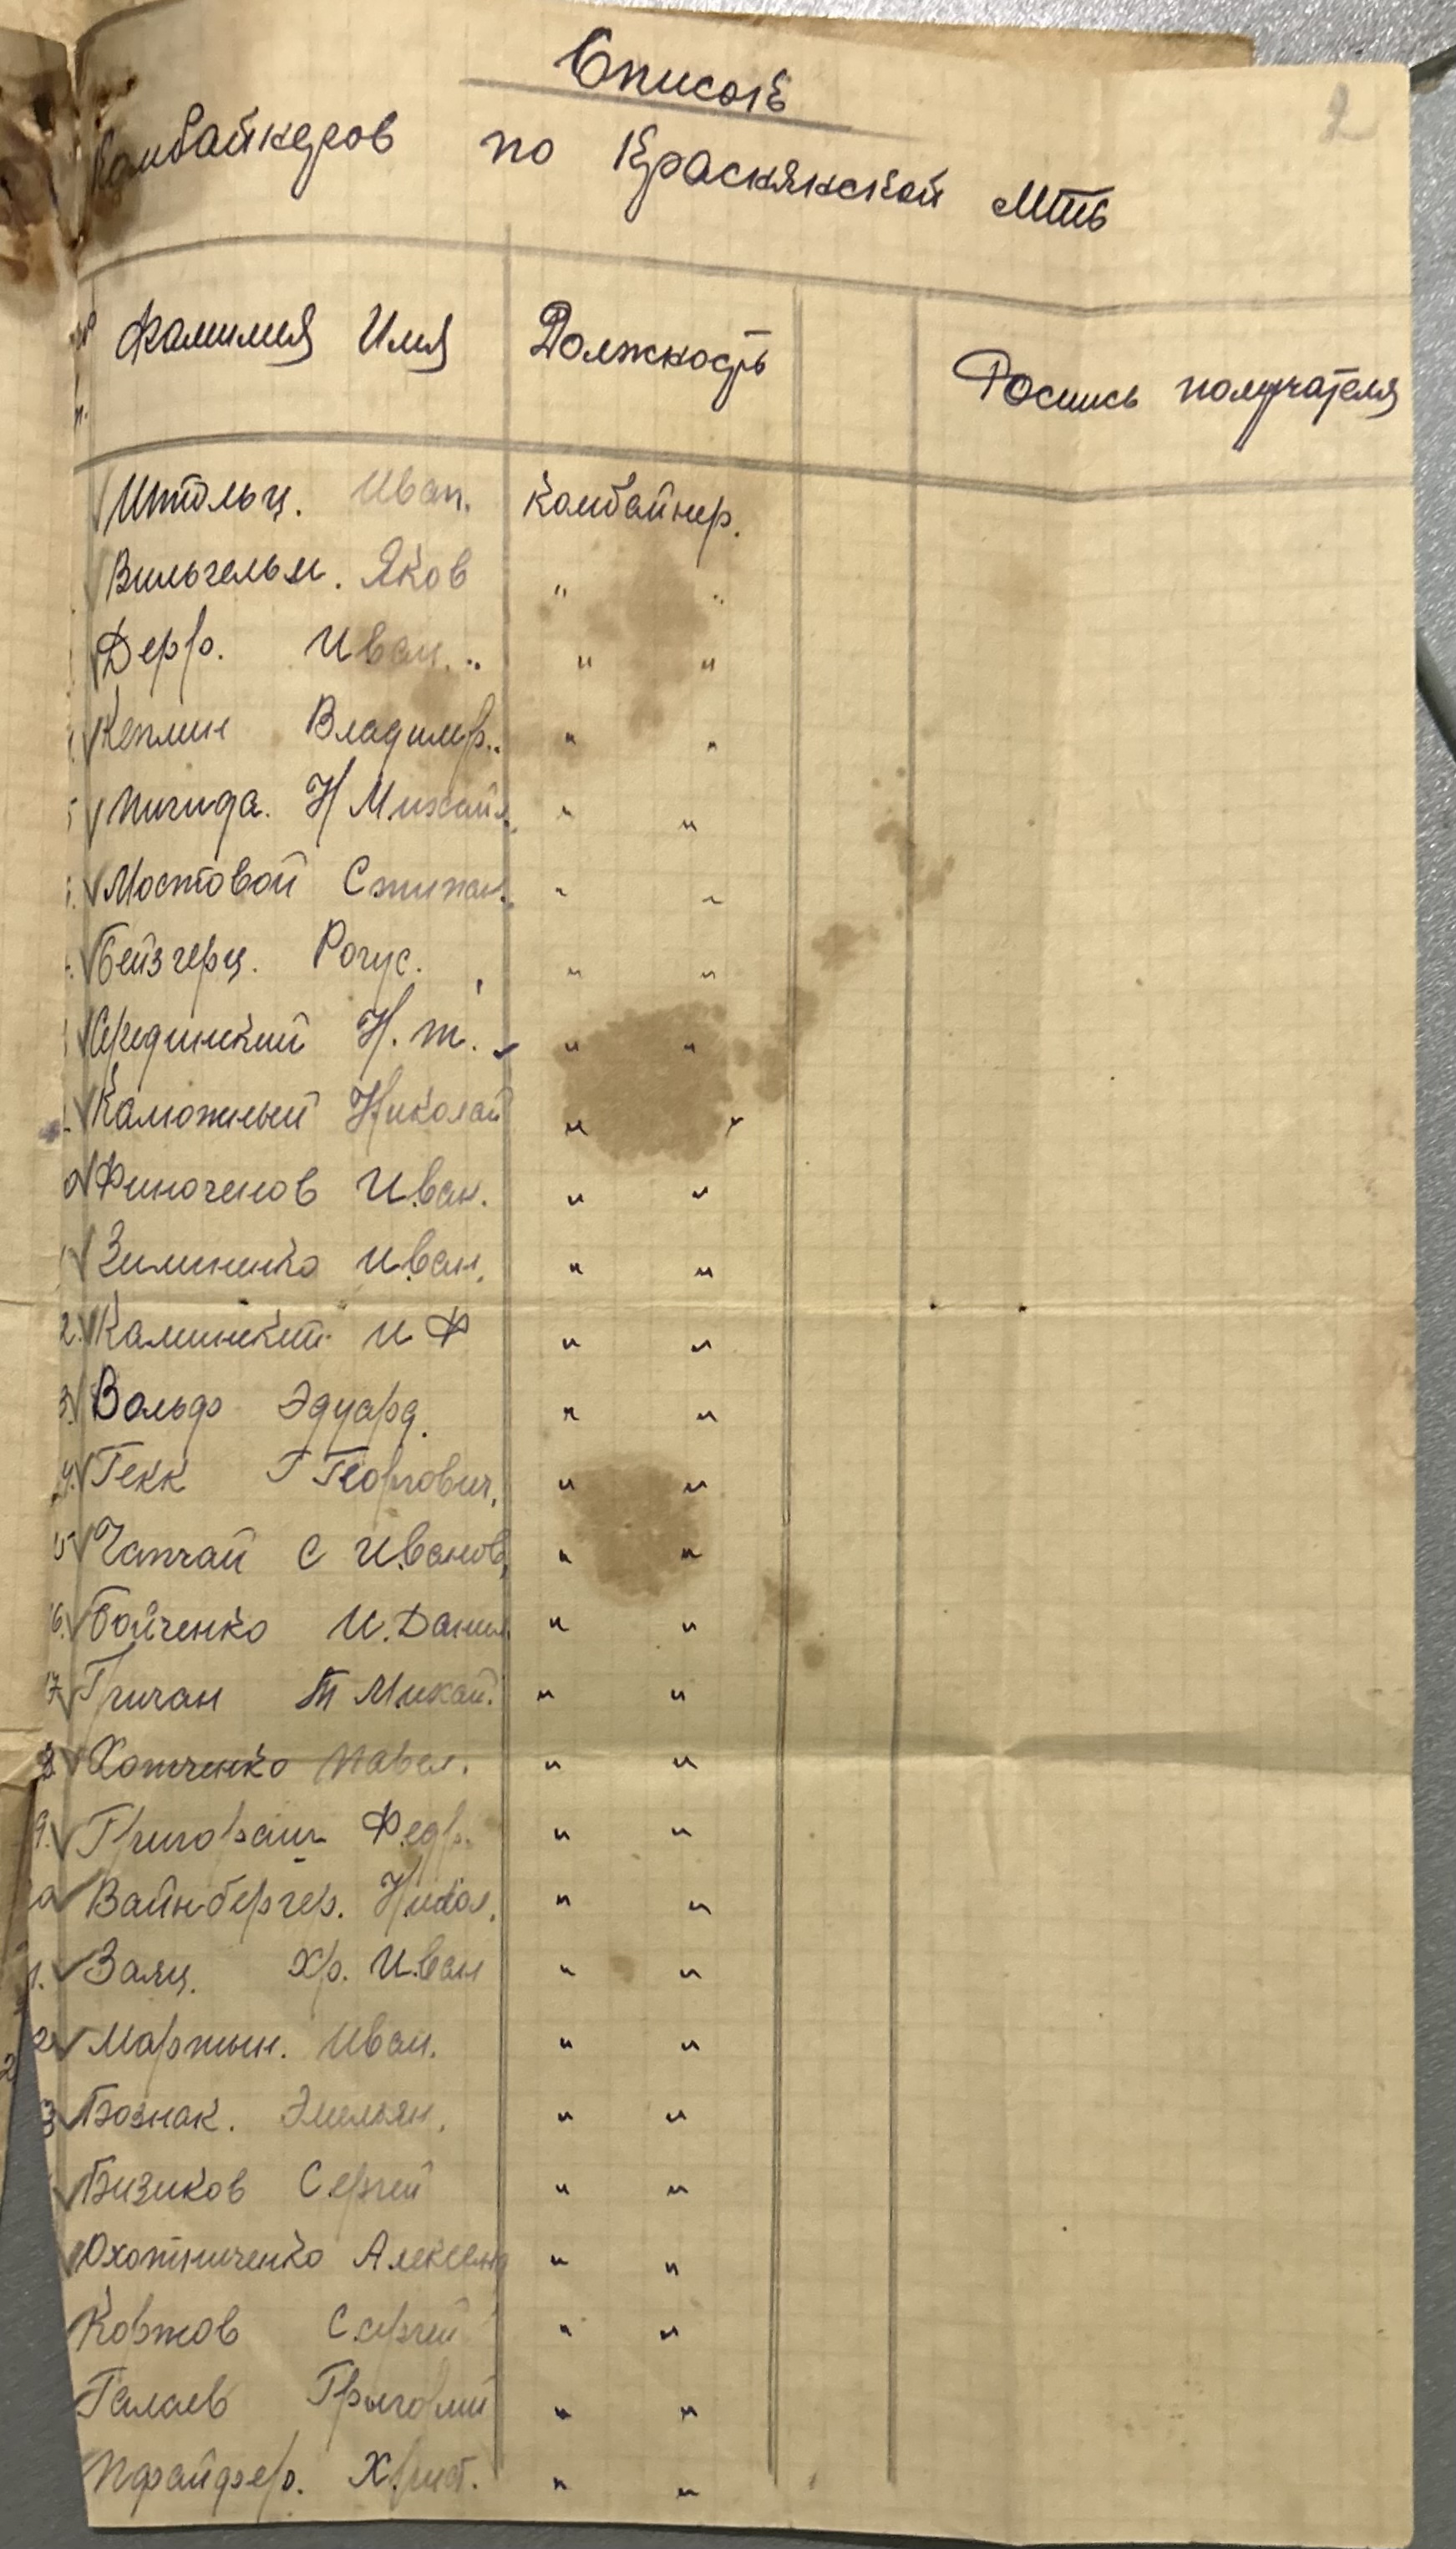 2
Список
Комбайнеров по Краснянской МТС
Фамилия Имя Должность Роспись получателя
Штольц. Иван. Комбайнер.
Вильгельм. Яков " "
Дерр. Иван. " "
Кеплин Владимир. " "
5 Пигида. Н Михайл. " "
Мостовой Степан. " "
Бейзгерц. Рогус. " "
Срединский Н. т. " "
Калюжный Николай " "
0 Финогенов Иван. " "
Зимненко Иван. " "
2. Калинский И Ф " "
3. Вольф Эдуард. " "
4. Гекк Г Георгович. " "
5 Чапчай С Иванов. " "
16. Бойченко И. Данил. " "
17 Гричан Т Михай. " "
8 Хотченко Павел. " "
9. Григораш Федр. " "
0 Вайнбергер. Никол. " "
1. Заяц. Хр. Иван " "
2 Мартын. Иван. " "
3 Бознак. Эмельян. " "
Бизиков Сергей " "
Охотниченко Александ " "
Коржов Сергей " "
Галаев Григорий " "
Пфайфер. Христ. " "